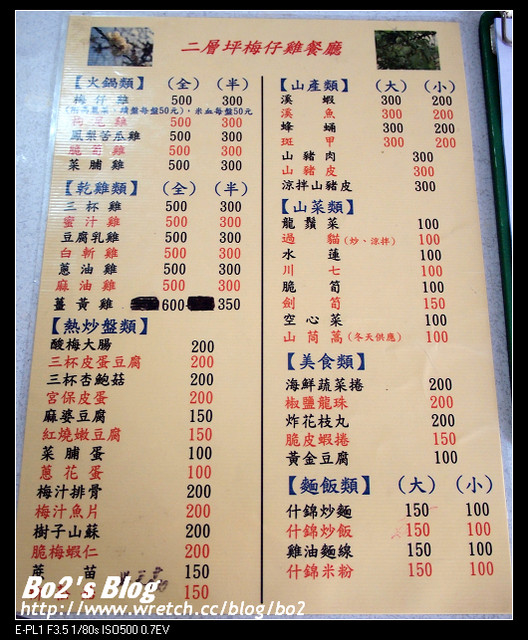 二層坪梅仔雞餐廳
【火鍋類】 （全） （半）
梅仔雞 500 300
梅尾雞 500 300
鳳梨苦瓜雞 500 300
脆筍雞 500 300
菜脯雞 500 300
【乾雞類】 （全） （半）
三杯雞 500 300
蜜汁雞 500 300
豆腐乳雞 500 300
白斬雞 500 300
蔥油雞 500 300
麻油雞 500 300
薑黃雞 600 350
【熱炒盤類】
酸梅大腸 200
三杯皮蛋豆腐 200
三杯杏鮑菇 200
宮保皮蛋 200
麻婆豆腐 150
紅燒嫩豆腐 150
菜脯蛋 100
蔥花蛋 100
梅汁排骨 200
梅汁魚片 200
樹子山蘇 200
脆梅蝦仁 200
蔗苗 150
150
【山產類】 （大） （小）
溪蝦 300 200
溪魚 300 200
蜂蛹 300 200
斑甲 300 200
山豬肉 300
山豬皮 300
涼拌山豬皮 300
【山菜類】
龍鬚菜 100
過貓(炒、涼拌) 100
水蓮 100
川七 100
脆筍 100
劍筍 150
空心菜 100
山茼蒿(冬天供應) 100
【美食類】
海鮮蔬菜捲 200
椒鹽龍珠 200
炸花枝丸 200
脆皮蝦捲 150
黃金豆腐 100
【麵飯類】 （大） （小）
什錦炒麵 150 100
什錦炒飯 150 100
雞油麵線 150 100
什錦米粉 150 100
Bo2's Blog
http://www.wretch.cc/blog/bo2
E-PL1 F3.5 1/80s ISO500 0.7EV